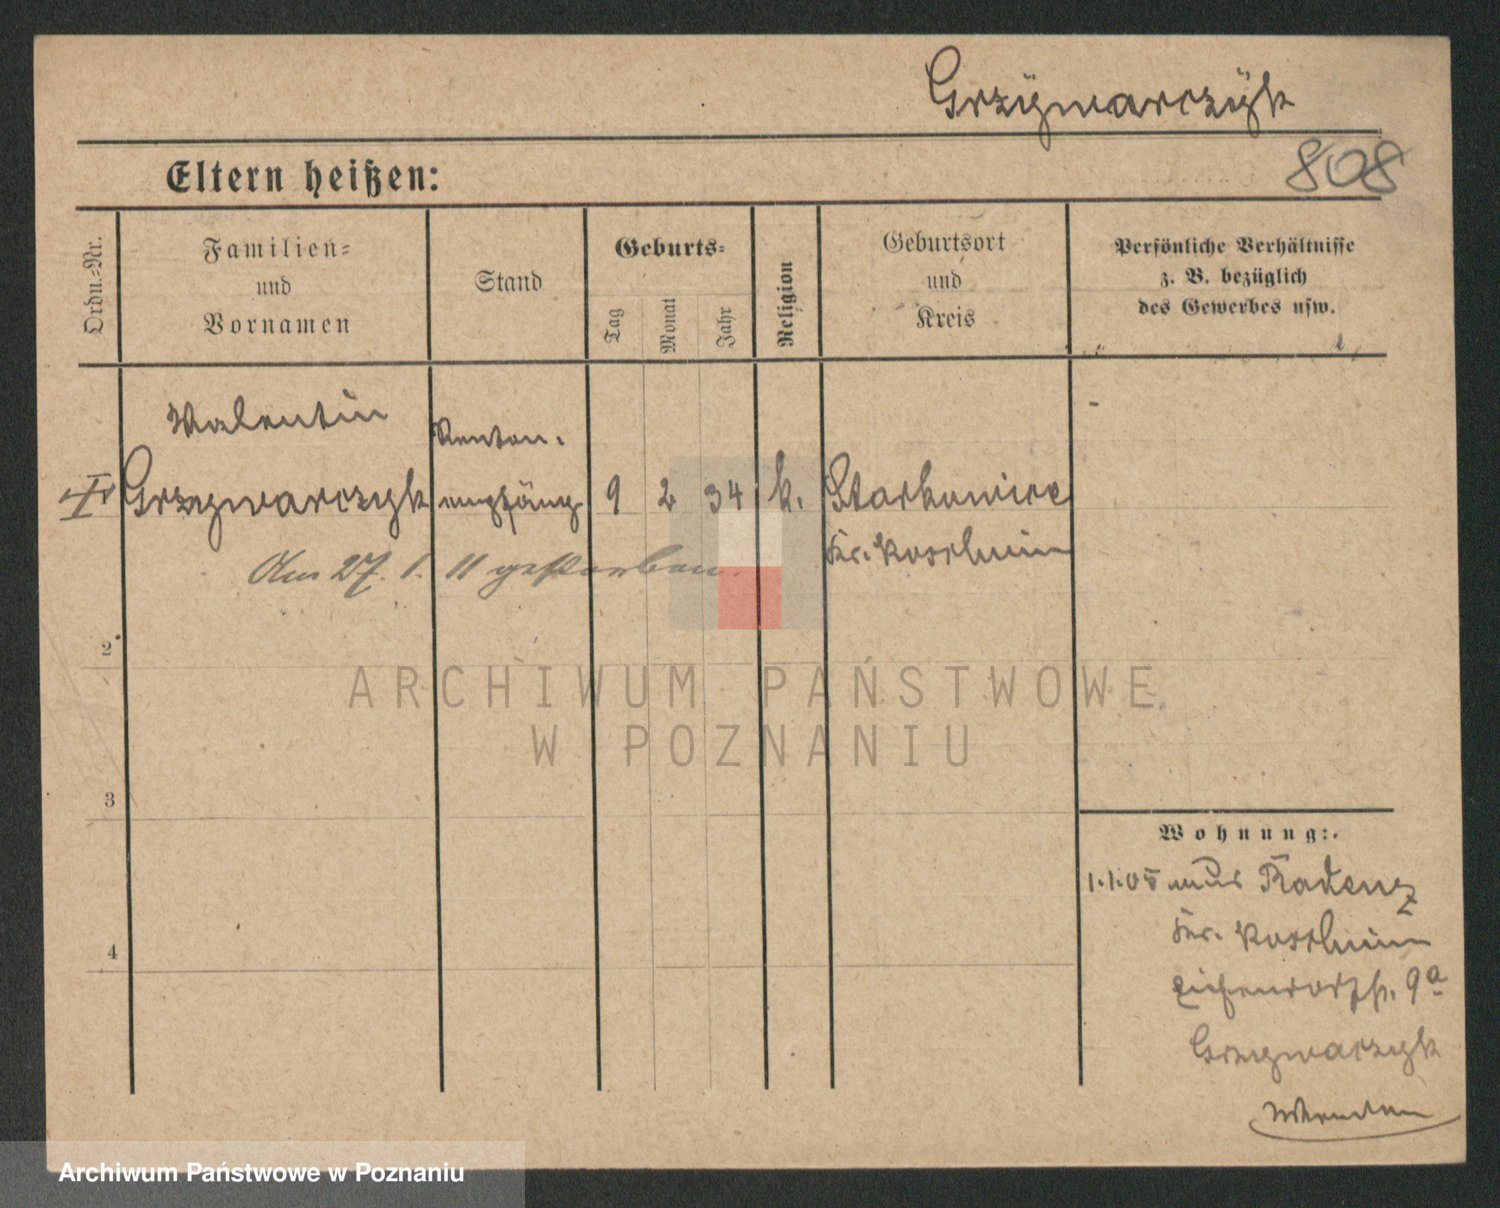 Grzÿmarczÿk
808
Eltern heißen:
Ordn.-Nr.
Familien-
und
Vornamen
Stand
Geburts-
Tag
Monat
Jahr
Religion
Geburtsort
und
Kreis
Persönliche Verhältnisse
z. B. bezüglich
des Gewerbes usw.
Valentin
Renten-
1
Grzymarczyk
empfäng.
9
2
34
k.
Starkowiec
Kr. Koschmin
Am 27. 1. 11 gestorben.
2
3
4
Wohnung:
1.1.05 aus Radenz
Kr. Koschmin
9a
Grzymarzyk
ARCHIWUM PAŃSTWOWE
W POZNANIU
Archiwum Państwowe w Poznaniu